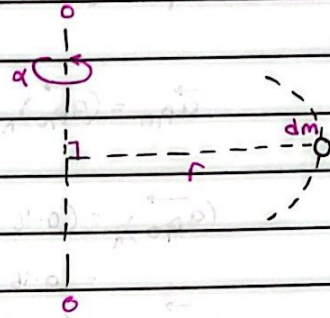 O
α
dm
r
O